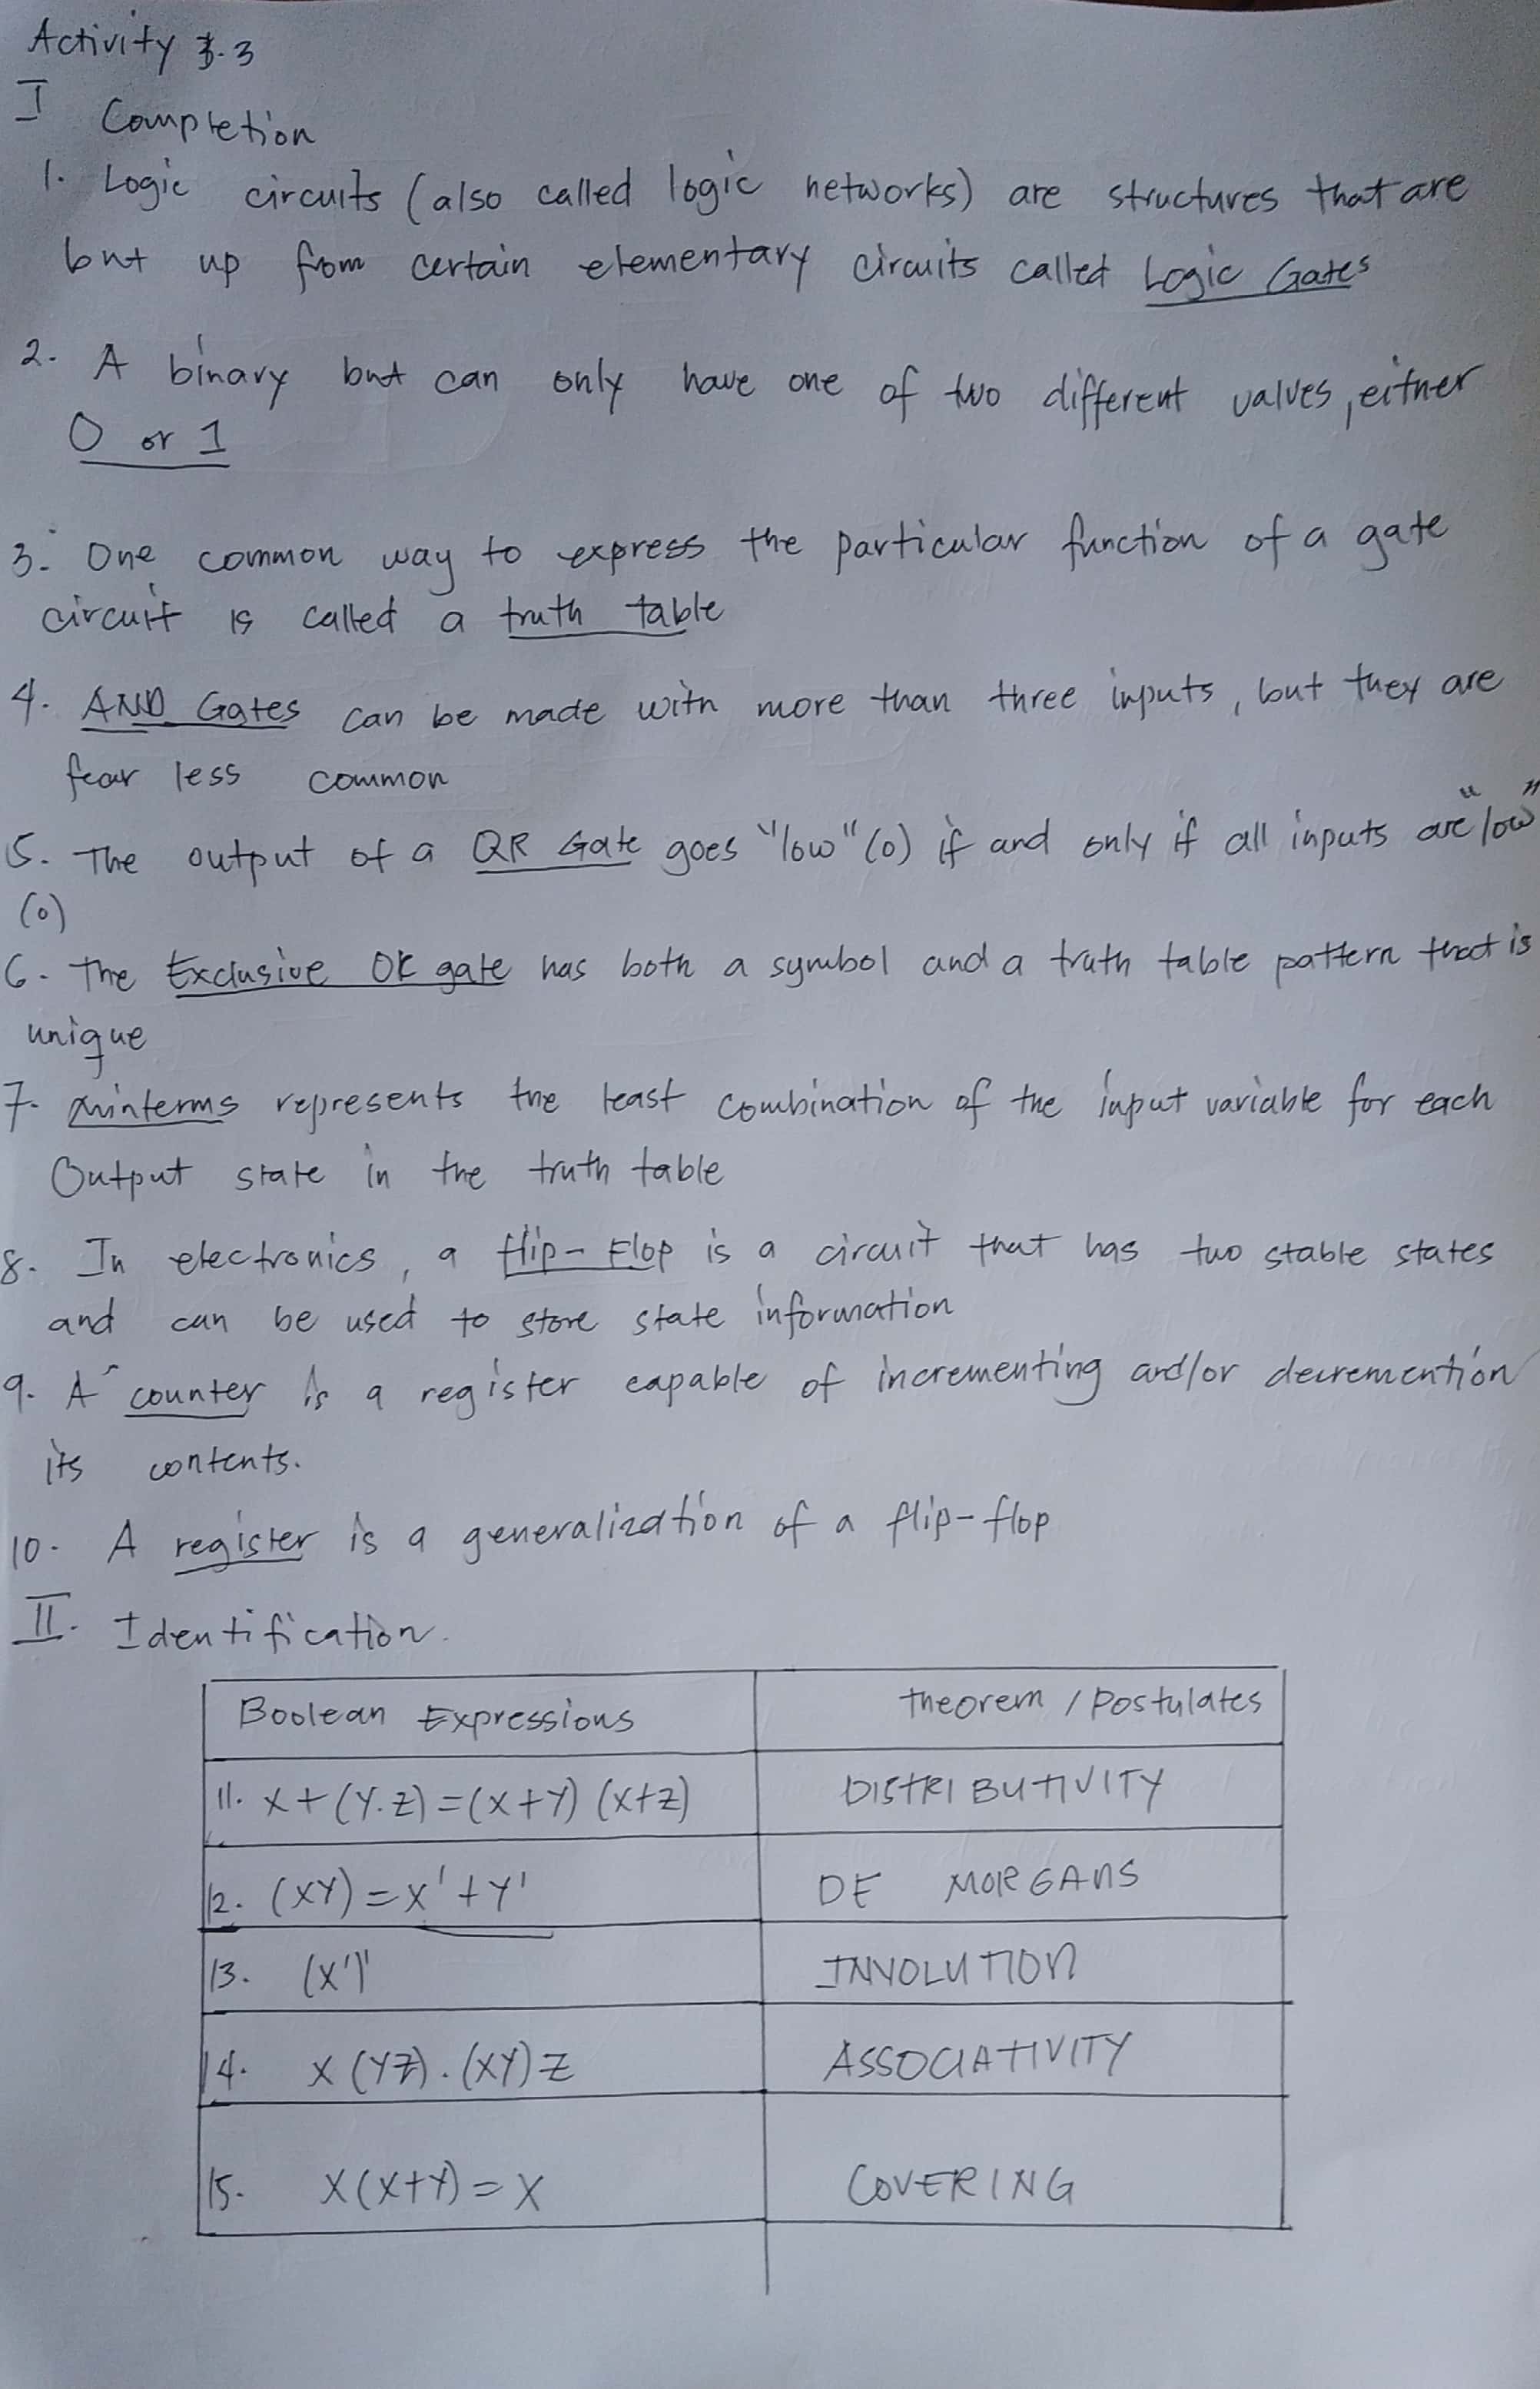 Activity 3.3
I Completion
1. Logic circuits (also called logic networks) are structures that are
but up from certain elementary circuits called Logic Gates
2. A binary but can only have one of two different values, either
0 or 1
3. One common way to express the particular function of a gate
circuit is called a truth table
4. AND Gates can be made with more than three inputs, but they are
fear less common
5. The output of a OR Gate goes "low" (0) if and only if all inputs are "low"
(0)
6. The Exclusive OR gate has both a symbol and a truth table pattern that is
unique
7. minterms represents the least combination of the input variable for each
Output state in the truth table
8. In electronics, a flip-Flop is a circuit that has two stable states
and can be used to store state information
9. A counter is a register capable of incrementing and/or decremention
its contents.
10. A register is a generalization of a flip-flop
II. Identification.
Boolean Expressions Theorem / Postulates
11. X+(Y.Z)=(X+Y) (X+Z) DISTRIBUTIVITY
12. (XY)=X'+Y' DE MORGANS
13. (X')' INVOLUTION
14. X(YZ).(XY)Z ASSOCIATIVITY
15. X(X+Y)=X COVERING